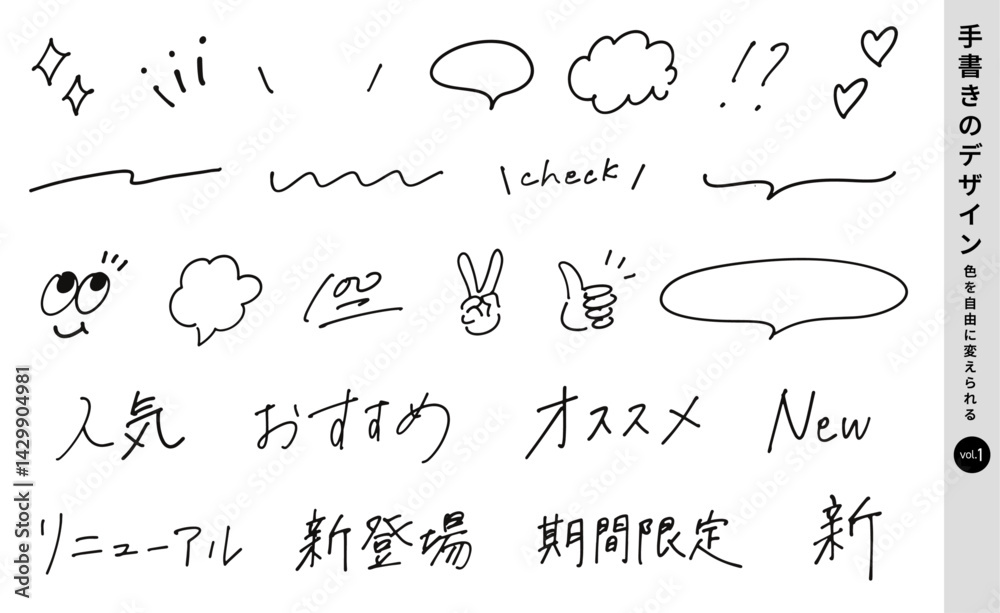 !?
\check/
100
人気 おすすめ オススメ New
リニューアル 新登場 期間限定 新
手書きのデザイン 色を自由に変えられる
vol.1
Adobe Stock | #1429904981